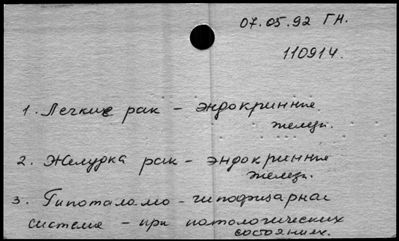 07.05.92 ГН.
110914.
1. Легких рак – эндокринные
железы.
2. Желудка рак – эндокринные
железы.
3. Гипоталамо-гипофизарная
система – при патологических
состояниях.